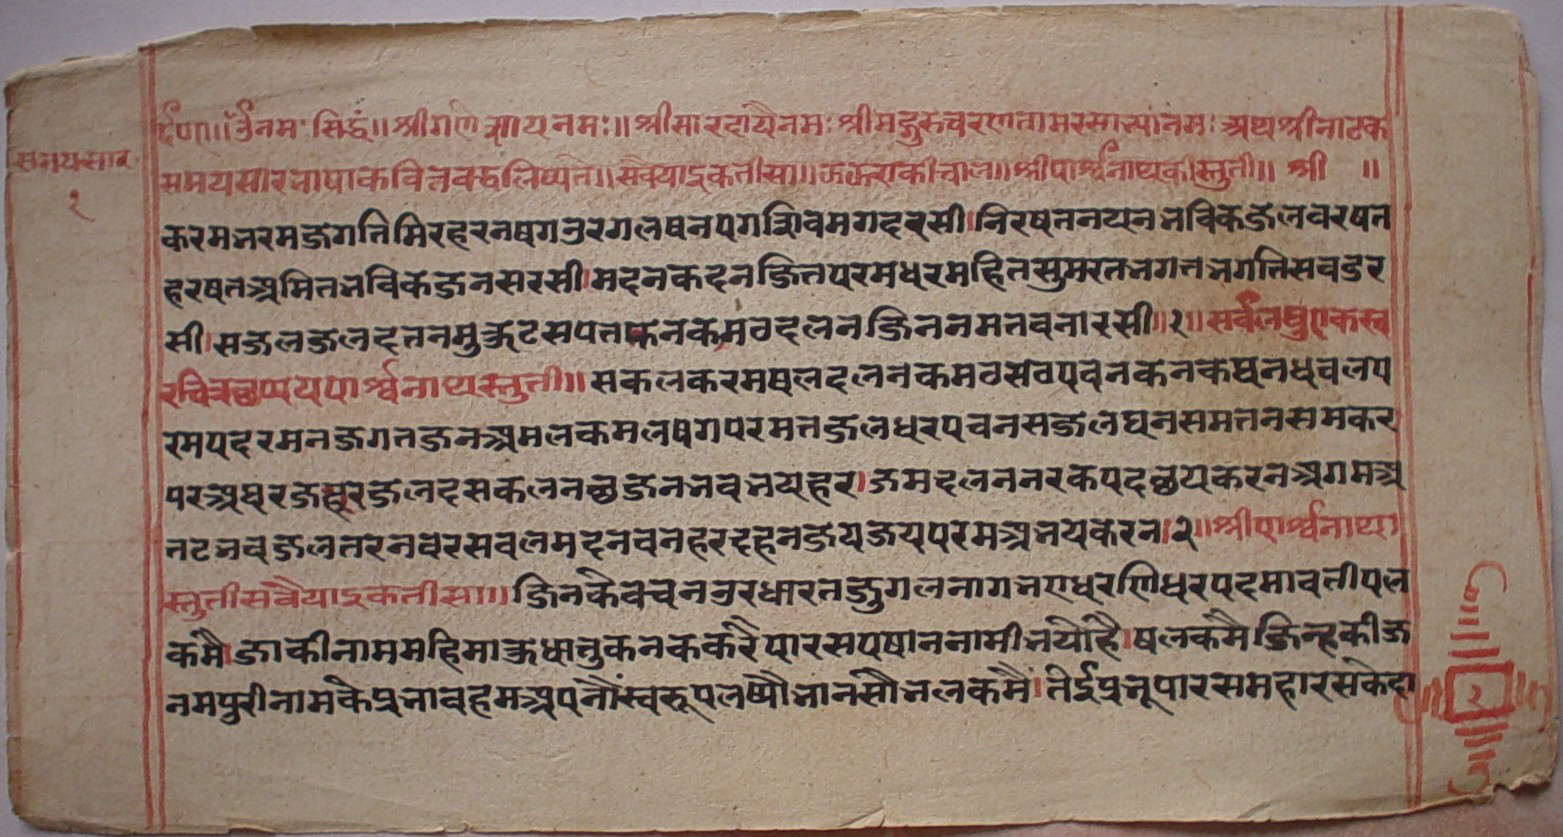 समयसार
१
ॐनमः सिद्धं॥ श्रीगणेशायनमः॥ श्रीसारदायैनमः श्रीमद्गुरुचरणतामरसाभ्यांनमः अथश्रीनाटक
समयसारभाषाकवितबद्धलिष्यते॥ सवैयाइकतीसा॥ श्रीपार्श्वनाथकीस्तुती॥ श्री ॥
करमभरमजगतिमिरहरनषगउरगलषनपगशिवमगदरसी।निरषतनयनभविकजलवरषत
हरषतअमितभविकजनसरसी।मदनकदनजितपरमधरमहितसुमरतभगतभगतिसवडर
सी।सजलजलदतनमुकुटसपतफनकमठदलनजिननमतवनारसी॥१॥ सर्वलघुएकस्व
रचित्रछप्पयपार्श्वनाथस्तुती॥ सकलकरमषलदलनकमठसठपवनकनकघनधवलप
रमपदरमनजगतजनअमलकमलषगपरमतजलधरपवनसजलघनसमतनसमकर
परअघरजहरजलदसकलनछजननतभवभयहर।जमदलननरकपदछयकरनअगमअ
तटभवजलतरनवरसवलमदनवनहरदहनजयजयपरमअभयकरन।२॥ श्रीपार्श्वनाथ
स्तुतीसवैयाइकतीसा॥ जिनकेवचनउरधारतजुगलनागभएधरणिधरपदमावतीपल
कमै।जाकीनाममहिमाजधातुकनककरैपारसपषाननामीभयौहै।षलकमै जिन्हकीज
नमपुरीनामकेप्रभावहमअपनौंस्वरूपलष्यौभानसौभलकमैं।तेईप्रभूपारसमहारसकेदा
१